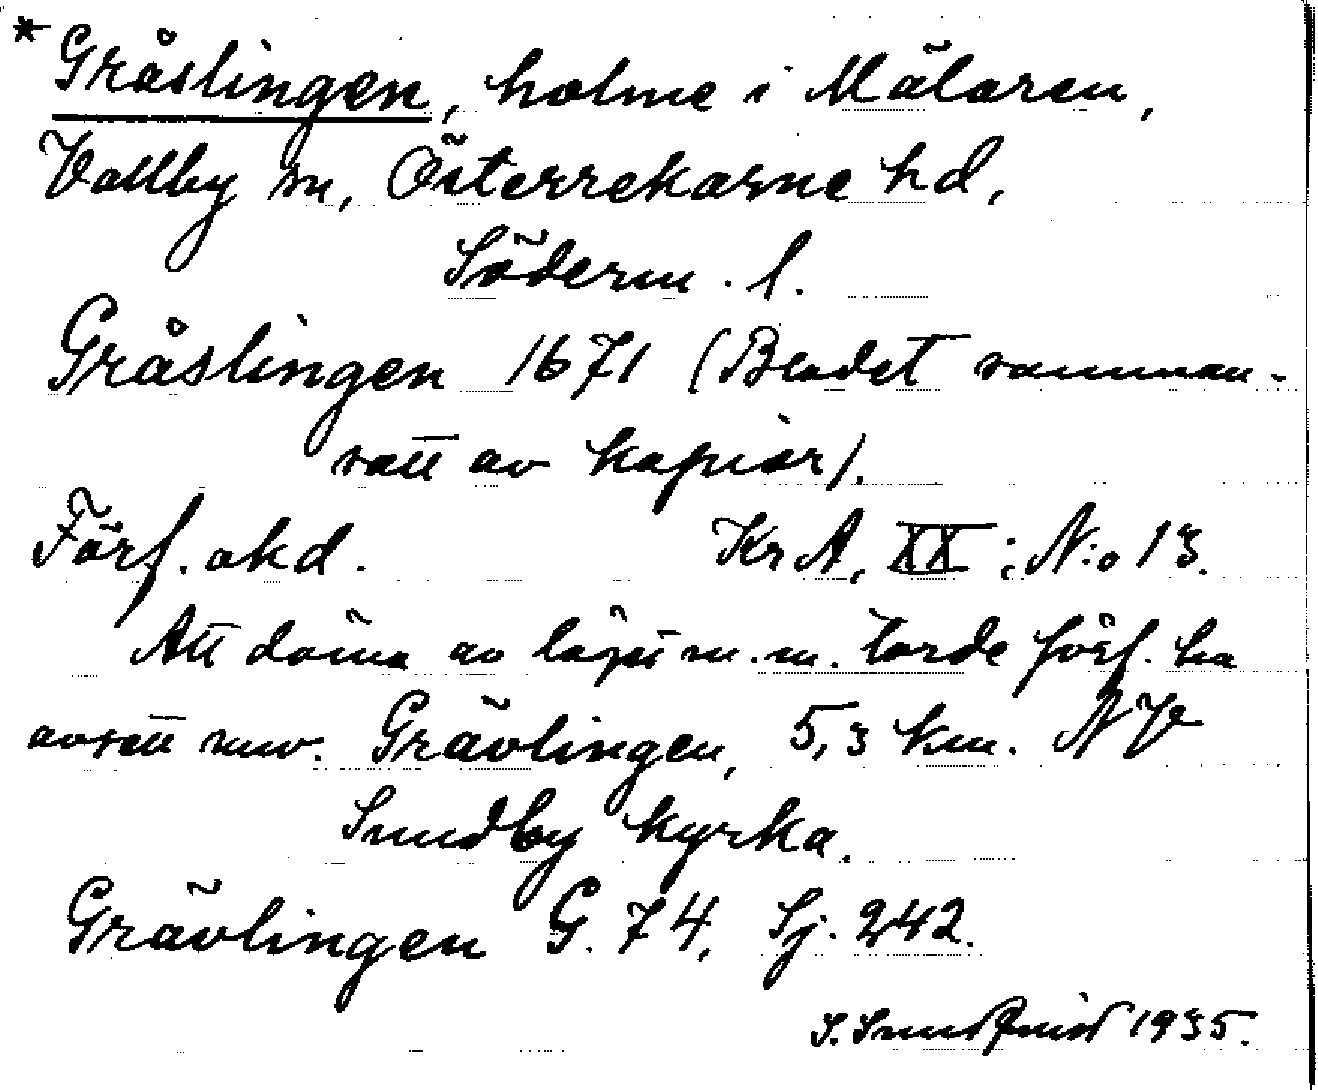 * Gråslingen, holme i Mälaren,
Vallby sn, Österrekarne hd,
Söderm. l.
Gråslingen 1671 (Bladet samman-
satt av kopior).
Förf. okd. KrA, XX; N:o 13.
Att döma av läget m.m. torde förf. ha
avsett nuv. Grävlingen, 5,3 km. NV
Sundby kyrka.
Grävlingen G. 74, Sj. 242.
S. Sundqvist 1935.